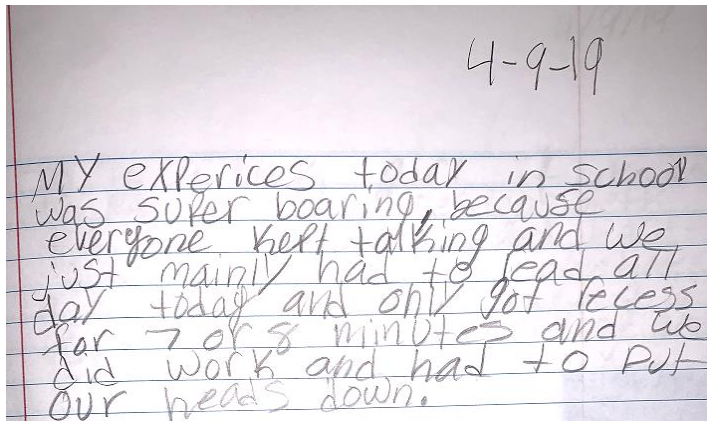 4-9-19
MY experices today in school
was super boaring, because
everyone kept talking and we
just mainly had to read all
day today and only got recess
for 7 or 8 minutes and we
did work and had to put
our heads down.